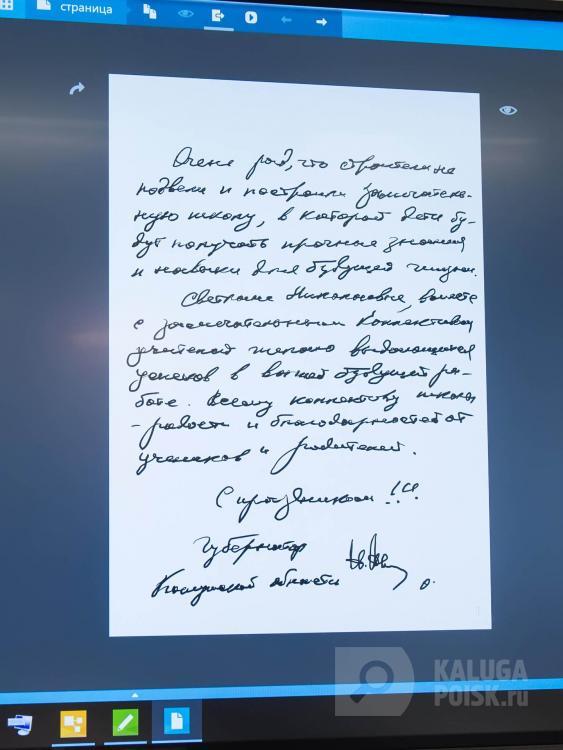 страница
Очень рад, что строители не
подвели и построили замечатель-
ную школу, в которой дети бу-
дут получать прочные знания
и навыки для будущей жизни.
Светлане Николаевне, вместе
с замечательным коллективом
учителей желаю выдающихся
успехов в вашей будущей ра-
боте. Всему коллективу школы
- радости и благодарностей от
учеников и родителей.
С праздником!!!
Губернатор
Калужской области
KALUGA
POISK.ru